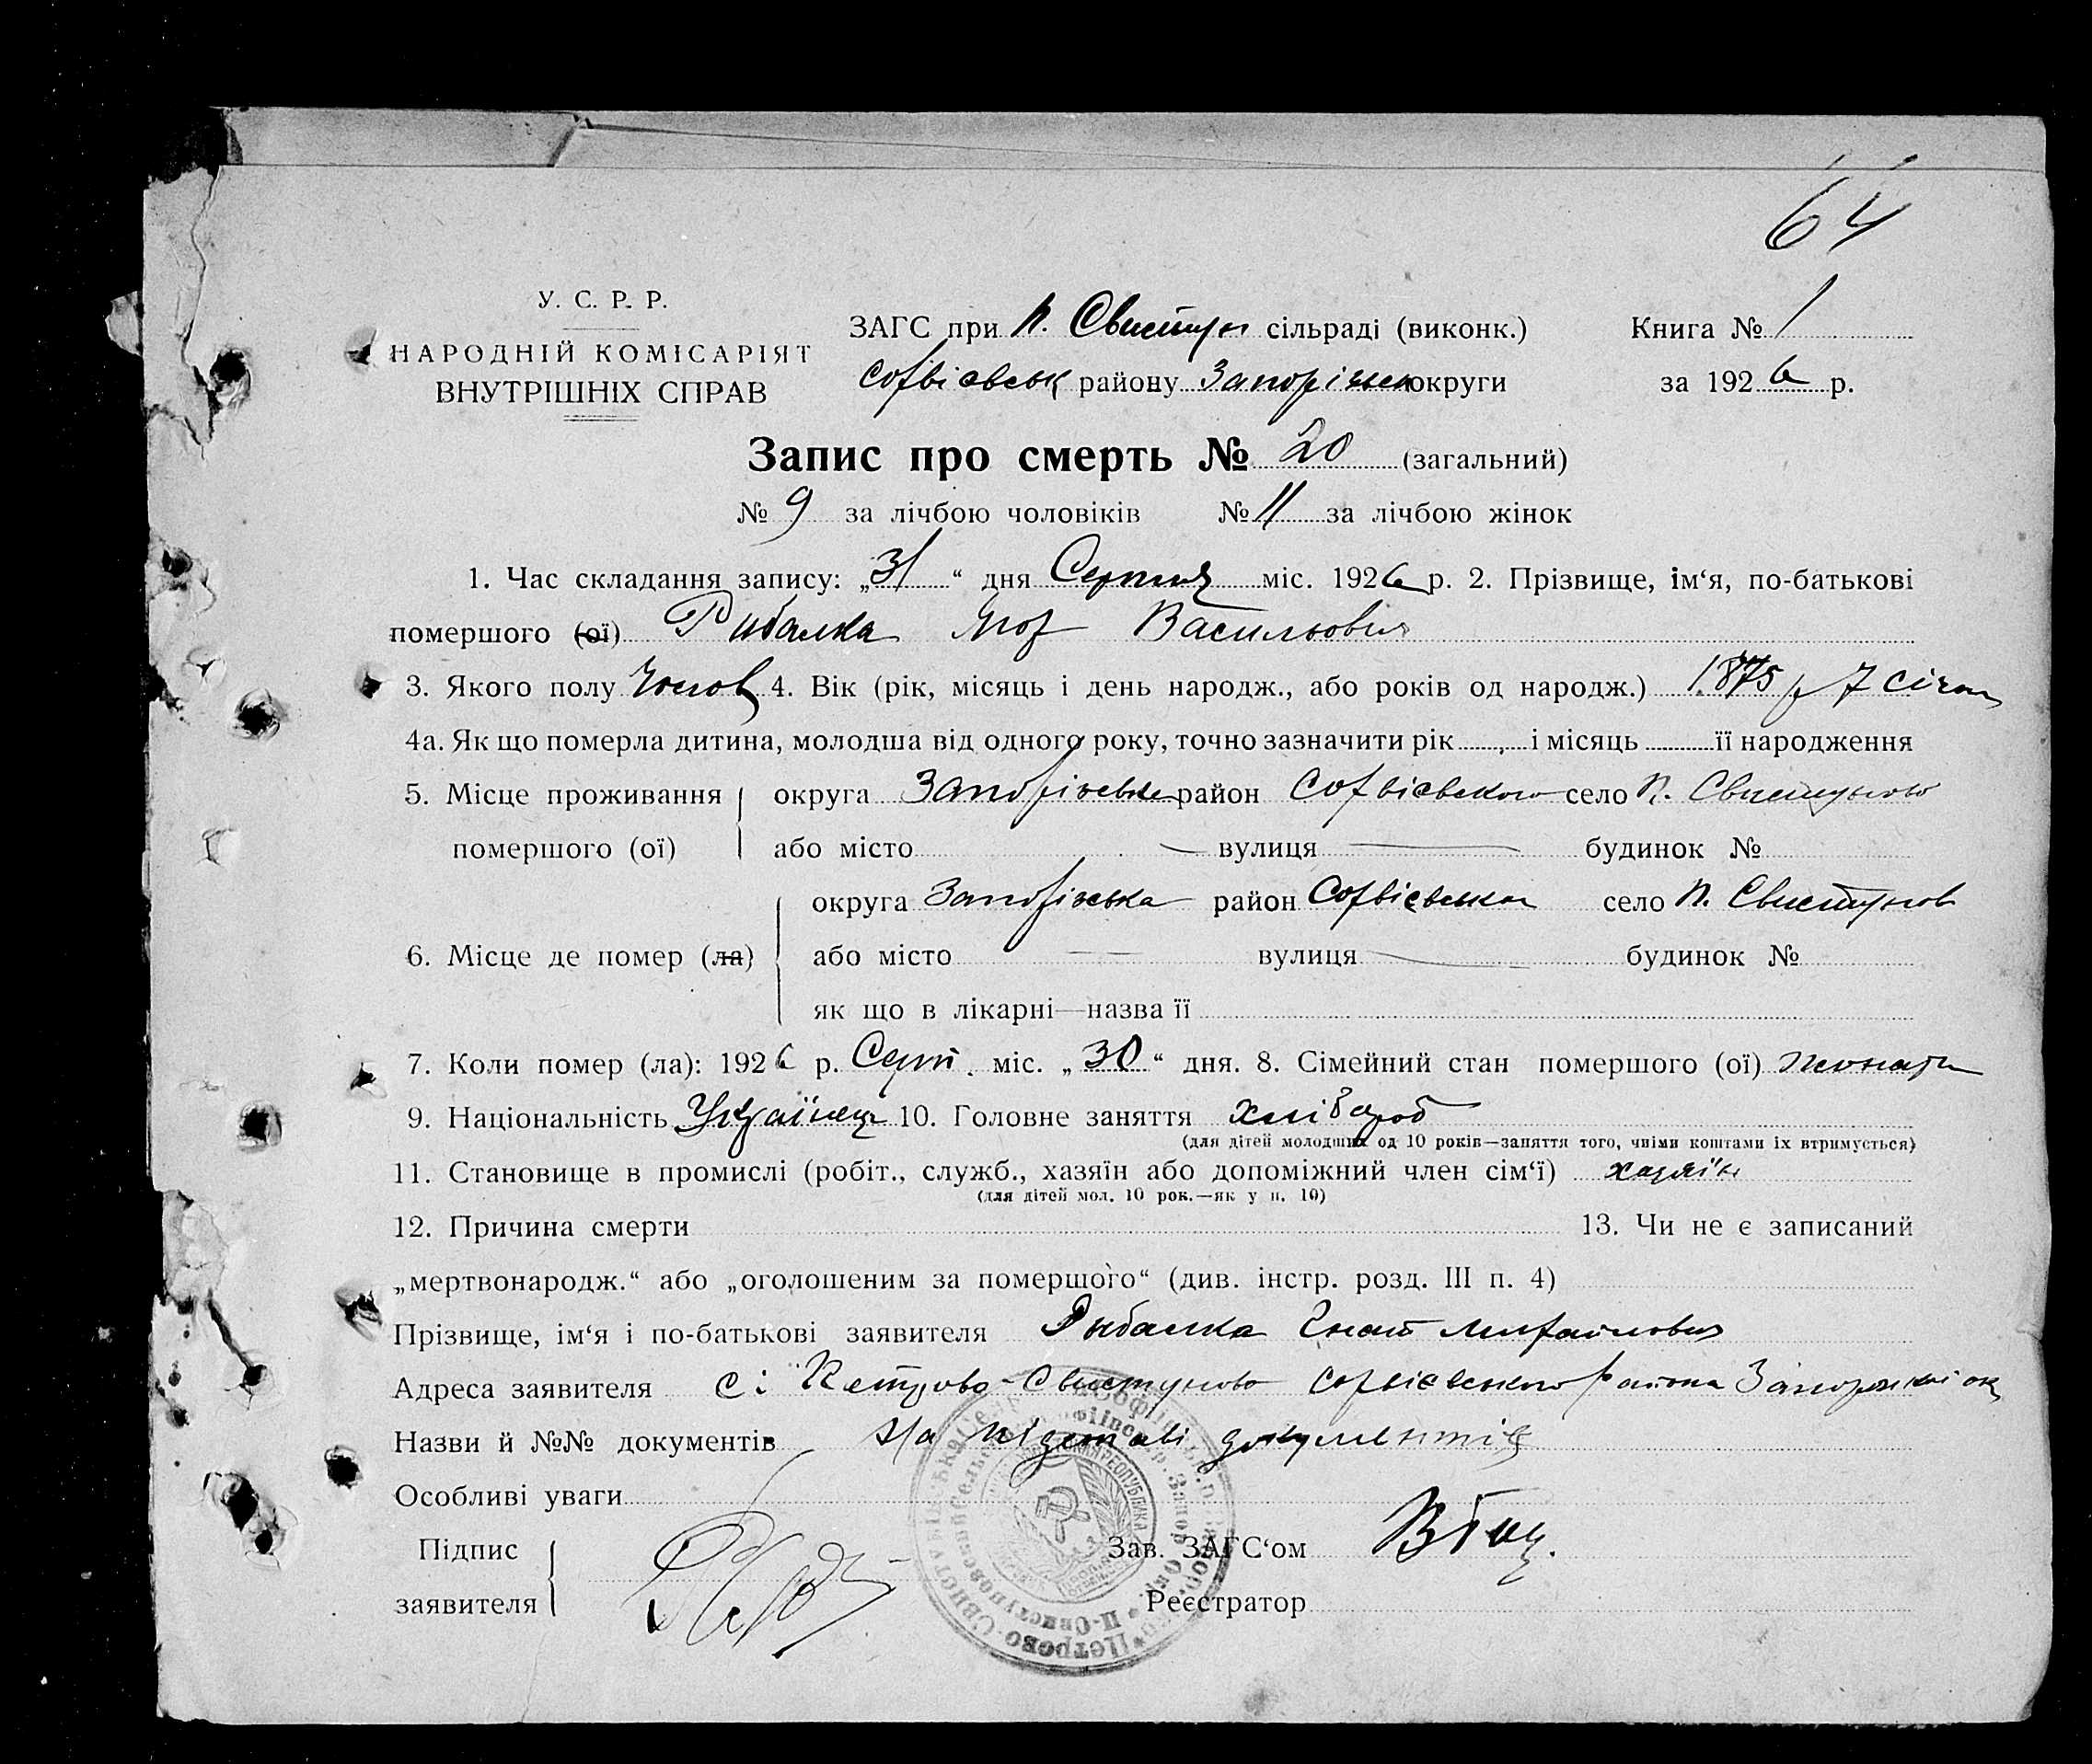 64
У. С. Р. Р.
НАРОДНІЙ КОМІСАРІЯТ
ВНУТРІШНІХ СПРАВ
ЗАГС при П. Свистун сільраді (виконк.)
Софієвськ району Запоріжськ округи
Книга № 1
за 1926 р.
Запис про смерть № 20 (загальний)
№ 9 за лічбою чоловіків № 11 за лічбою жінок
1. Час складання запису: „31“ дня Серпня міс. 1926 р. 2. Прізвище, ім‘я, по-батькові
помершого (ої) Рибалка Васильович
3. Якого полу Чолов 4. Вік (рік, місяць і день народж., або років од народж.) 1875 р 7 січня
4а. Як що померла дитина, молодша від одного року, точно зазначити рік і місяць її народження
5. Місце проживання помершого (ої) округа Запоріжська район Софієвського село П. Свистуново
або місто — вулиця — будинок №
6. Місце де помер (ла) округа Запоріжська район Софієвська село П. Свистунов
або місто — — вулиця — будинок №
як що в лікарні—назва її
7. Коли помер (ла): 1926 р. Серп. міс. „30“ дня. 8. Сімейний стан помершого (ої) жонати
9. Національність Українець 10. Головне заняття хлібороб
(для дітей молодших од 10 років—заняття того, чиїми коштами їх втримується)
11. Становище в промислі (робіт., служб., хазяїн або допоміжний член сім‘ї) хазяїн
(для дітей мол. 10 рок.—як у п. 10)
12. Причина смерти 13. Чи не є записаний
„мертвонародж.“ або „оголошеним за помершого“ (див. інстр. розд. III п. 4)
Прізвище, ім‘я і по-батькові заявителя Рыбалка Гнат Михайлович
Адреса заявителя с: Петрово-Свистуново Софієвського района Запоріжкої ок
Назви й №№ документів На підставі документів
Особливі уваги
Підпис заявителя
Зав. ЗАГС‘ом
Реєстратор